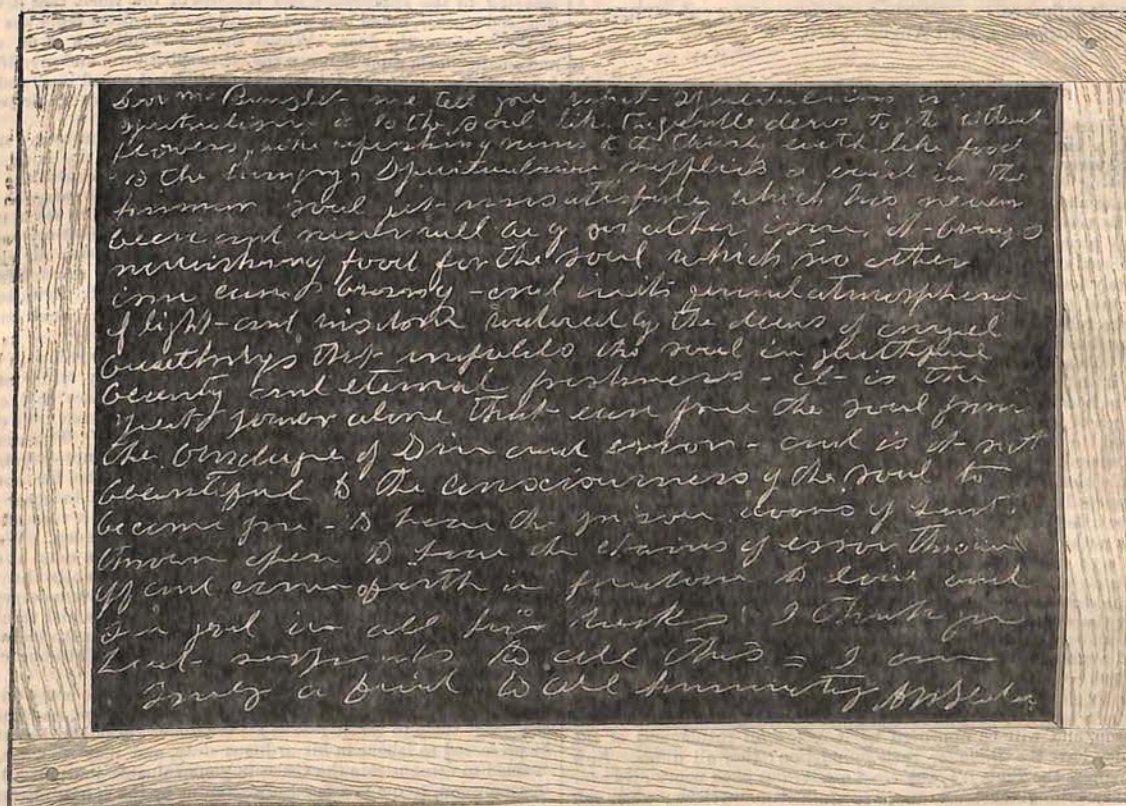 Dear Mr Bundy let me tell you what Spiritualism is
Spiritualism is to the soul like the gentle dews to the withered
flowers, like refreshing rains to the thirsty earth like food
to the hungry, Spiritualism supplies a void in the
human soul yet unsatisfied which has never
been and never will be by no other ism. it brings
nourishing food for the soul which no other
ism can bring - and in its genial atmosphere
of light - and wisdom watered by the dews of angel
breathings that unfolds the soul in youthful
beauty and eternal freshness - it is the
great power alone that can free the soul from
the bondage of Sin and error - and is it not
beautiful to the consciousness of the soul to
become free - to have the prison doors of
thrown open to have the chains of error thrown
off and come forth in freedom to love and
see god in all his works I think your
heart responds to all this = I am
Truly a friend to all humanity